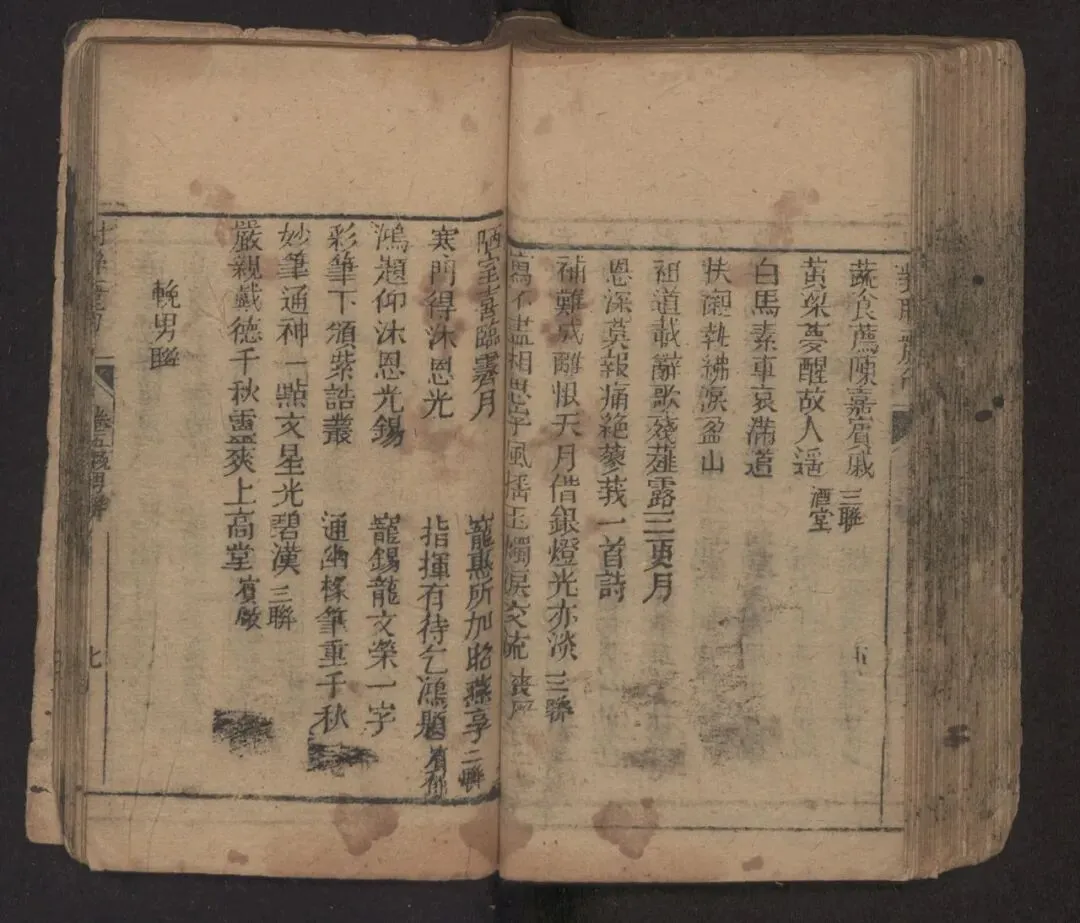 蔬食薦陳嘉賓戚 三聯
黄粱夢醒故人遥 酒堂
白馬素車哀滿道
扶輀執紼淚盈山
祖道載辭歌殘薤露三更月
恩深莫報痛絶蓼莪一首詩
補難成離恨天月借銀燈光亦淡 三聯
寫不盡相思字風搖玉燭淚交流 喪
陋室喜臨霽月 寵惠所加昭燕享 二聯
寒門得沐恩光 指揮有待乞鴻題
鴻題仰沐恩光錫 寵錫龍文榮一字
彩筆下頒紫誥叢 通幽椽筆重千秋
妙筆通神一點文星光碧漢 三聯
嚴親戴德千秋靈爽上高堂
輓男聯
卷五 男聯
七